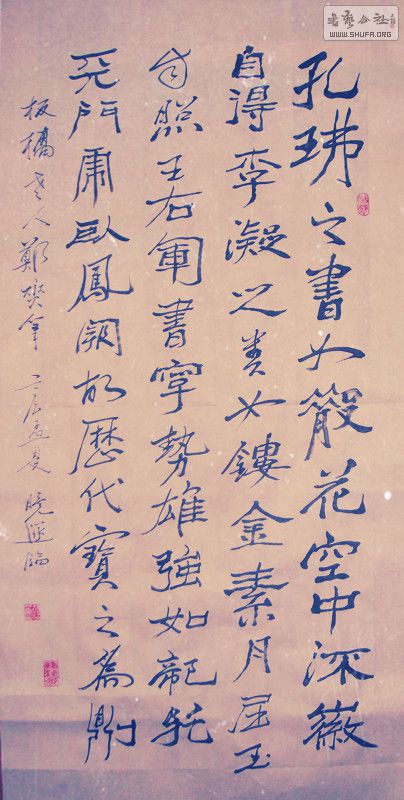 書藝公社
WWW.SHUFA.ORG
孔琳之書如散花空中流徽
自得李之如鏤金素月屈玉
自照王右軍書字勢雄強如龍跳
天門虎臥鳳闕故歷代寶之為訓
板橋老人鄭燮 壬辰孟夏 曉臨